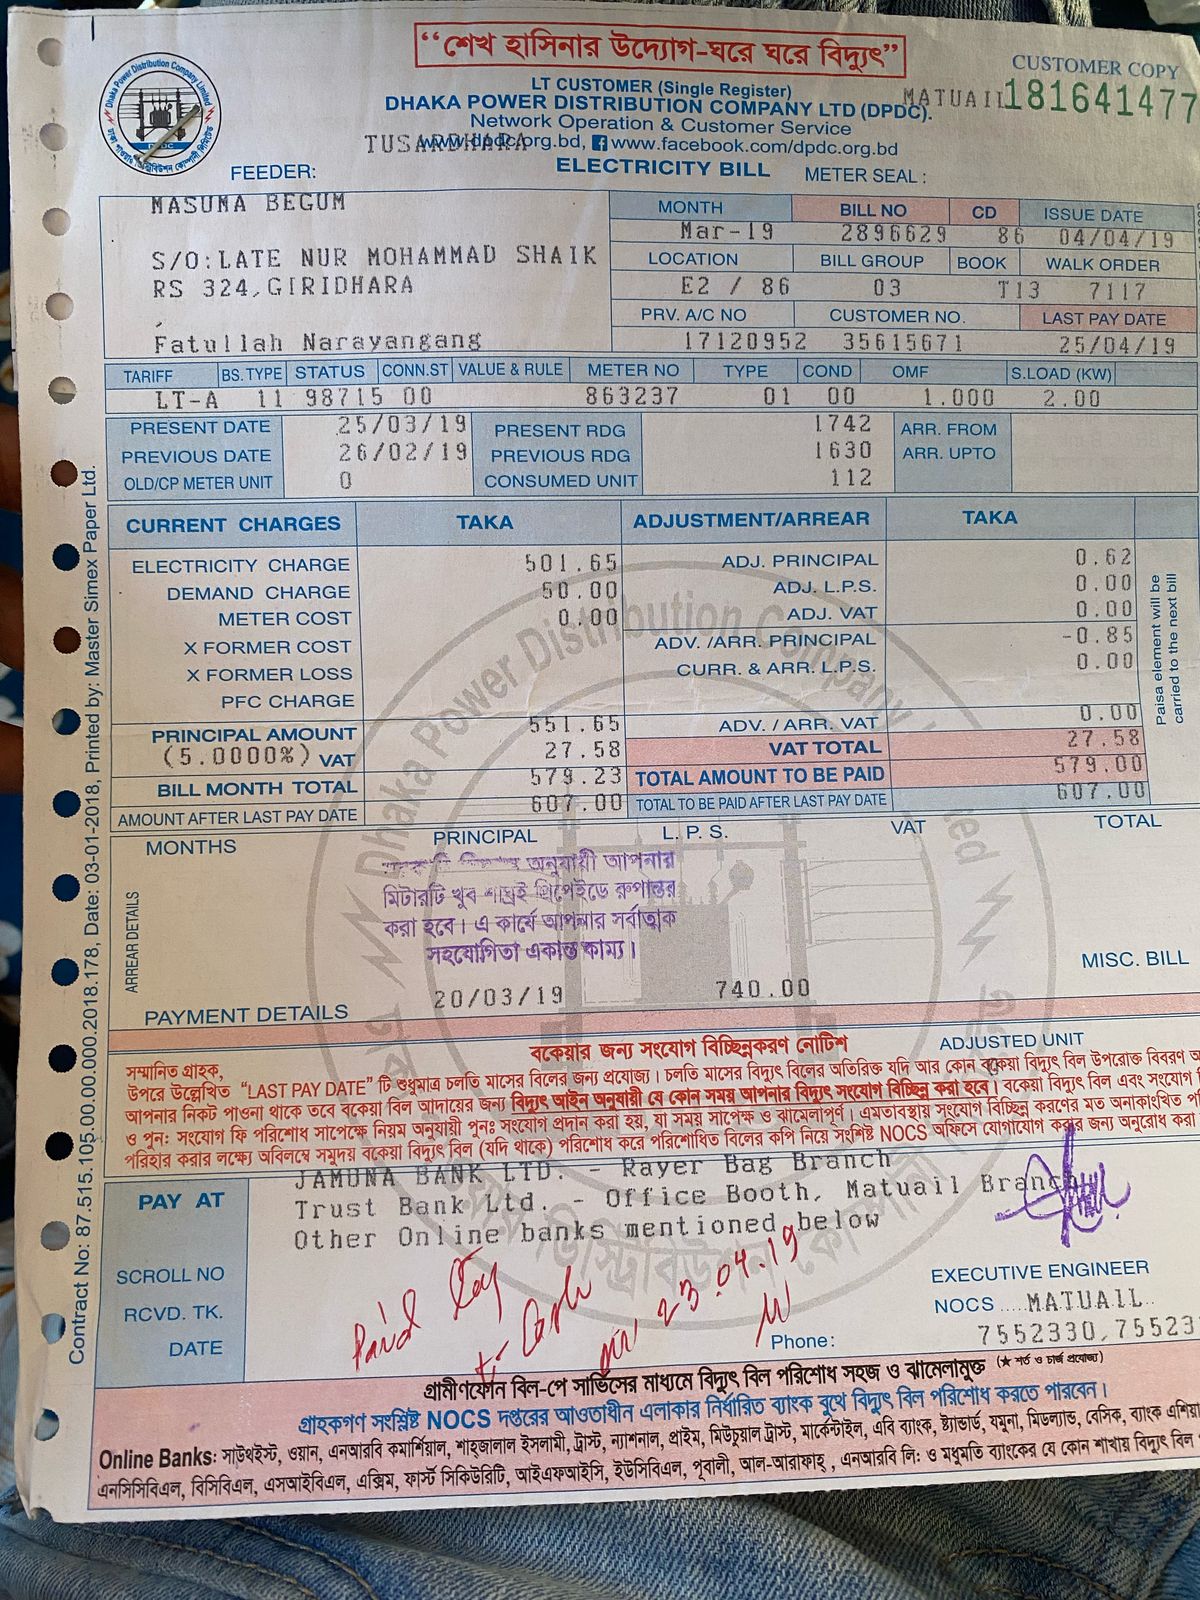 “শেখ হাসিনার উদ্যোগ-ঘরে ঘরে বিদ্যুৎ”
CUSTOMER COPY
LT CUSTOMER (Single Register)
MATUAIL 181641477
DHAKA POWER DISTRIBUTION COMPANY LTD (DPDC).
Network Operation & Customer Service
TUSARDHARA
www.dpdc.org.bd, www.facebook.com/dpdc.org.bd
FEEDER: ELECTRICITY BILL METER SEAL :
Dhaka Power Distribution Company Limited
DPDC
MASUMA BEGUM
S/O:LATE NUR MOHAMMAD SHAIK
RS 324,GIRIDHARA
,
Fatullah Narayangang
MONTH BILL NO CD ISSUE DATE
Mar-19 2896629 86 04/04/19
LOCATION BILL GROUP BOOK WALK ORDER
E2 / 86 03 T13 7117
PRV. A/C NO CUSTOMER NO. LAST PAY DATE
17120952 35615671 25/04/19
TARIFF BS. TYPE STATUS CONN.ST VALUE & RULE METER NO TYPE COND OMF S.LOAD (KW)
LT-A 11 98715 00 863237 01 00 1.000 2.00
PRESENT DATE 25/03/19 PRESENT RDG 1742 ARR. FROM
PREVIOUS DATE 26/02/19 PREVIOUS RDG 1630 ARR. UPTO
OLD/CP METER UNIT 0 CONSUMED UNIT 112
CURRENT CHARGES TAKA ADJUSTMENT/ARREAR TAKA
ELECTRICITY CHARGE 501.65 ADJ. PRINCIPAL 0.62
DEMAND CHARGE 50.00 ADJ. L.P.S. 0.00
METER COST 0.00 ADJ. VAT 0.00
X FORMER COST ADV. /ARR. PRINCIPAL -0.85
X FORMER LOSS CURR. & ARR. L.P.S. 0.00
PFC CHARGE
PRINCIPAL AMOUNT 551.65 ADV. / ARR. VAT 0.00
(5.0000%) VAT 27.58 VAT TOTAL 27.58
BILL MONTH TOTAL 579.23 TOTAL AMOUNT TO BE PAID 579.00
AMOUNT AFTER LAST PAY DATE 607.00 TOTAL TO BE PAID AFTER LAST PAY DATE 607.00
Paisa element will be
carried to the next bill
MONTHS PRINCIPAL L. P. S. VAT TOTAL
ARREAR DETAILS
অনুযায়ী আপনার
মিটারটি খুব শীঘ্রই প্রিপেইডে রুপান্তর
করা হবে। এ কার্যে আপনার সর্বাত্মক
সহযোগিতা একান্ত কাম্য।
MISC. BILL
20/03/19 740.00
PAYMENT DETAILS
ADJUSTED UNIT
বকেয়ার জন্য সংযোগ বিচ্ছিন্নকরণ নোটিশ
সম্মানিত গ্রাহক,
উপরে উল্লেখিত “LAST PAY DATE” টি শুধুমাত্র চলতি মাসের বিলের জন্য প্রযোজ্য। চলতি মাসের বিদ্যুৎ বিলের অতিরিক্ত যদি আর কোন বকেয়া বিদ্যুৎ বিল উপরোক্ত বিবরণ
আপনার নিকট পাওনা থাকে তবে বকেয়া বিল আদায়ের জন্য বিদ্যুৎ আইন অনুযায়ী যে কোন সময় আপনার বিদ্যুৎ সংযোগ বিচ্ছিন্ন করা হবে। বকেয়া বিদ্যুৎ বিল এবং সংযোগ
ও পুন: সংযোগ ফি পরিশোধ সাপেক্ষে নিয়ম অনুযায়ী পুনঃ সংযোগ প্রদান করা হয়, যা সময় সাপেক্ষ ও ঝামেলাপূর্ণ। এমতাবস্থায় সংযোগ বিচ্ছিন্ন করণের মত অনাকাংখিত
পরিহার করার লক্ষ্যে অবিলম্বে সমুদয় বকেয়া বিদ্যুৎ বিল (যদি থাকে) পরিশোধ করে পরিশোধিত বিলের কপি নিয়ে সংশ্লিষ্ট NOCS অফিসে যোগাযোগ করার জন্য অনুরোধ করা
JAMUNA BANK LTD. - Rayer Bag Branch
PAY AT Trust Bank Ltd. - Office Booth, Matuail Branch
Other Online banks mentioned below
SCROLL NO
RCVD. TK.
DATE
Paid
23.04.19
EXECUTIVE ENGINEER
NOCS ..... MATUAIL
Phone: 7552330,75523
গ্রামীণফোন বিল-পে সার্ভিসের মাধ্যমে বিদ্যুৎ বিল পরিশোধ সহজ ও ঝামেলামুক্ত (★ শর্ত ও চার্জ প্রযোজ্য)
গ্রাহকগণ সংশ্লিষ্ট NOCS দপ্তরের আওতাধীন এলাকার নির্ধারিত ব্যাংক বুথে বিদ্যুৎ বিল পরিশোধ করতে পারবেন।
Online Banks: সাউথইস্ট, ওয়ান, এনআরবি কমার্শিয়াল, শাহজালাল ইসলামী, ট্রাস্ট, ন্যাশনাল, প্রাইম, মিউচুয়াল ট্রাস্ট, মার্কেন্টাইল, এবি ব্যাংক, ষ্ট্যান্ডার্ড, যমুনা, মিডল্যান্ড, বেসিক, ব্যাংক এশিয়া
এনসিসিবিএল, বিসিবিএল, এসআইবিএল, এক্সিম, ফার্স্ট সিকিউরিটি, আইএফআইসি, ইউসিবিএল, পূবালী, আল-আরাফাহ্, এনআরবি লি: ও মধুমতি ব্যাংকের যে কোন শাখায় বিদ্যুৎ বিল
Contract No: 87.515.105.00.00.000.2018.178, Date: 03-01-2018, Printed by: Master Simex Paper Ltd.